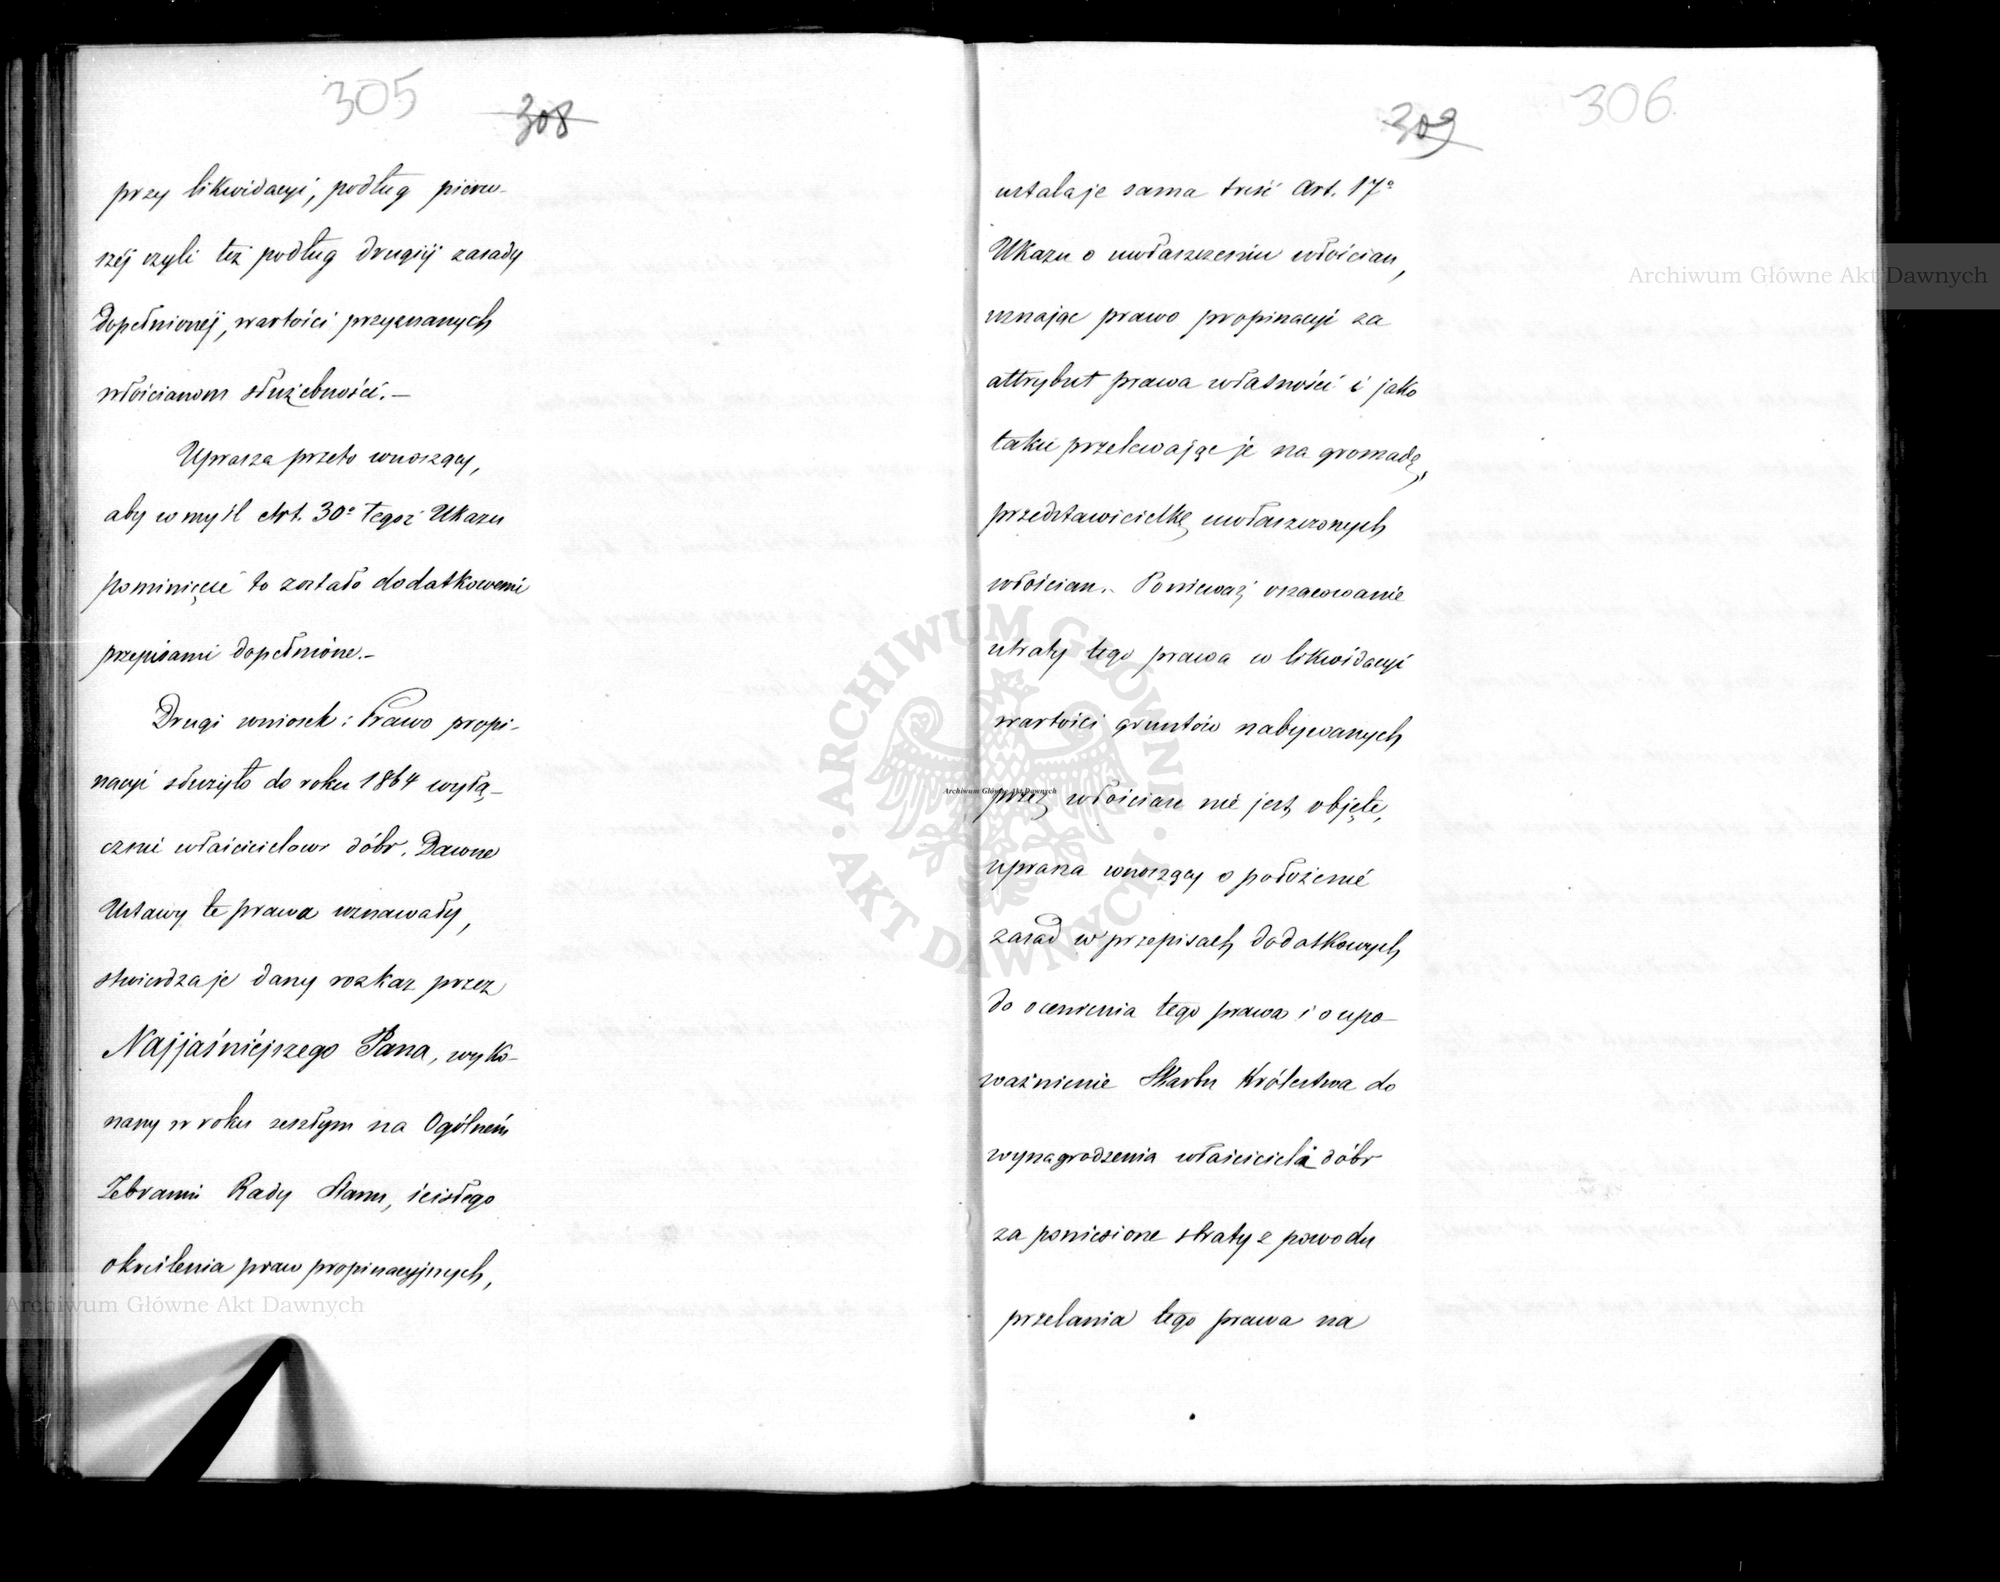 305
308
przy likwidacyi, podług pierw-
széj czyli też podług drugiéj zasady
dopełnionéj, wartości przyznanych
włościanom służebności.—
Uprasza przeto wnoszący,
aby w myśl Art. 30º tegoż Ukazu
pominięcie to zostało dodatkowemi
przepisami dopełnione.—
Drugi wniosek: Prawo propi-
nacyi służyło do roku 1864 wyłą-
cznie właścicielowi dóbr. Dawne
Ustawy te prawa uznawały,
stwierdza je dany rozkaz przez
Najjaśniejszego Pana, wyko-
nany w roku zeszłym na Ogólném
Zebraniu Rady Stanu, ścisłego
określenia praw propinacyjnych,
306
309
ustala je sama treść Art. 17º
Ukazu o uwłaszczeniu włościan,
uznając prawo propinacyi za
attrybut prawa własności i jako
takie przelewając je na gromadę,
przedstawicielkę uwłaszczonych
włościan. Ponieważ oszacowanie
utraty tego prawa w likwidacyi
wartości gruntów nabywanych
przez włościan nie jest objęte,
uprasza wnoszący o położenie
zasad w przepisach dodatkowych
do ocenienia tego prawa i o upo-
ważnienie Skarbu Królestwa do
wynagrodzenia właściciela dóbr
za poniesione straty z powodu
przelania tego prawa na
Archiwum Główne Akt Dawnych
Archiwum Główne Akt Dawnych
Archiwum Główne Akt Dawnych
ARCHIWUM GŁÓWNE AKT DAWNYCH